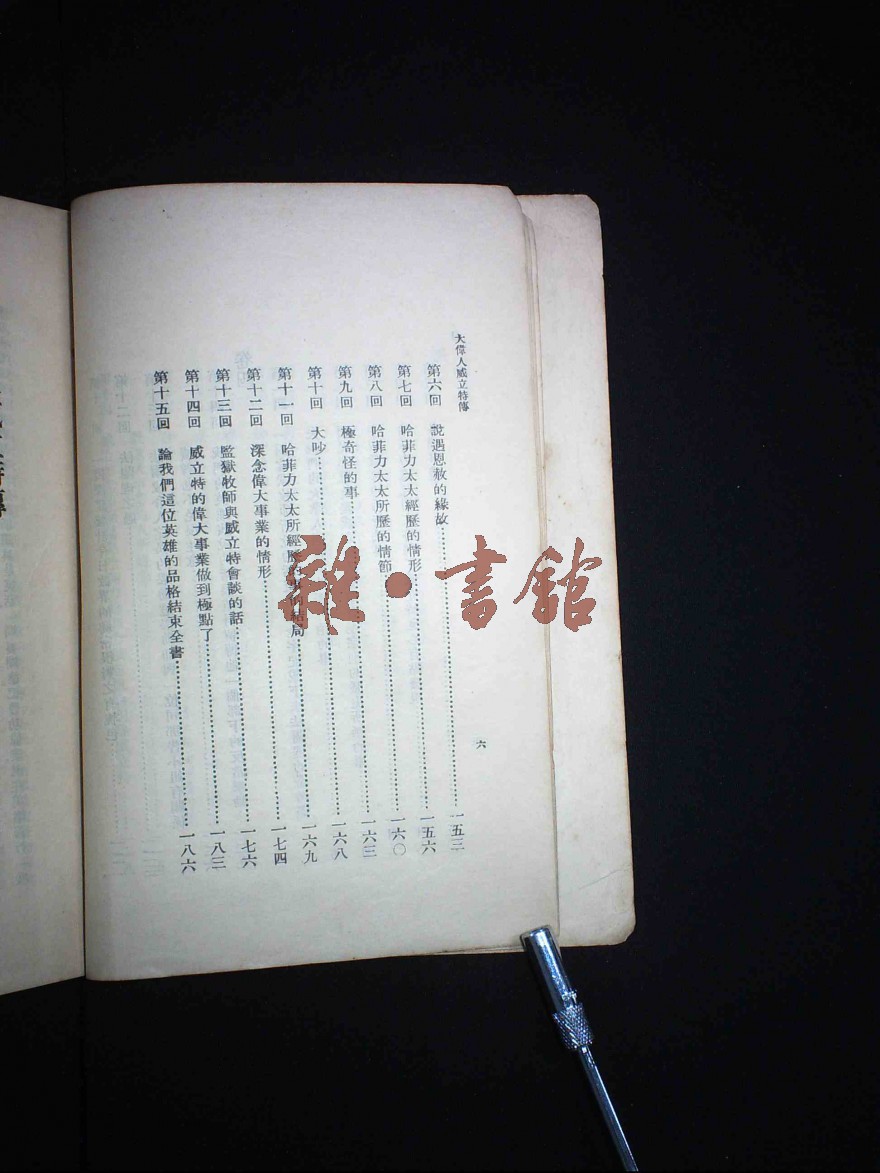 大偉人威立特傳
第六回 說遇恩赦的緣故……一五三
第七回 哈菲力太太經歷的情形……一五六
第八回 哈菲力太太所歷的情節……一六〇
第九回 極奇怪的事……一六三
第十回 大吵……一六八
第十一回 哈菲力太太所經歷結局……一六九
第十二回 深念偉大事業的情形……一七四
第十三回 監獄牧師與威立特會談的話……一七六
第十四回 威立特的偉大事業做到極點了……一八三
第十五回 論我們這位英雄的品格結束全書……一八六
六
雜·書館